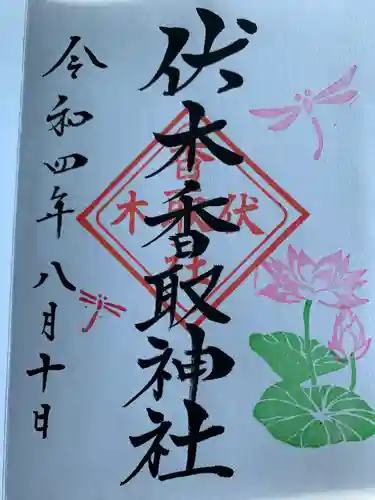 伏木香取神社
令和四年八月十日
伏木
香取社